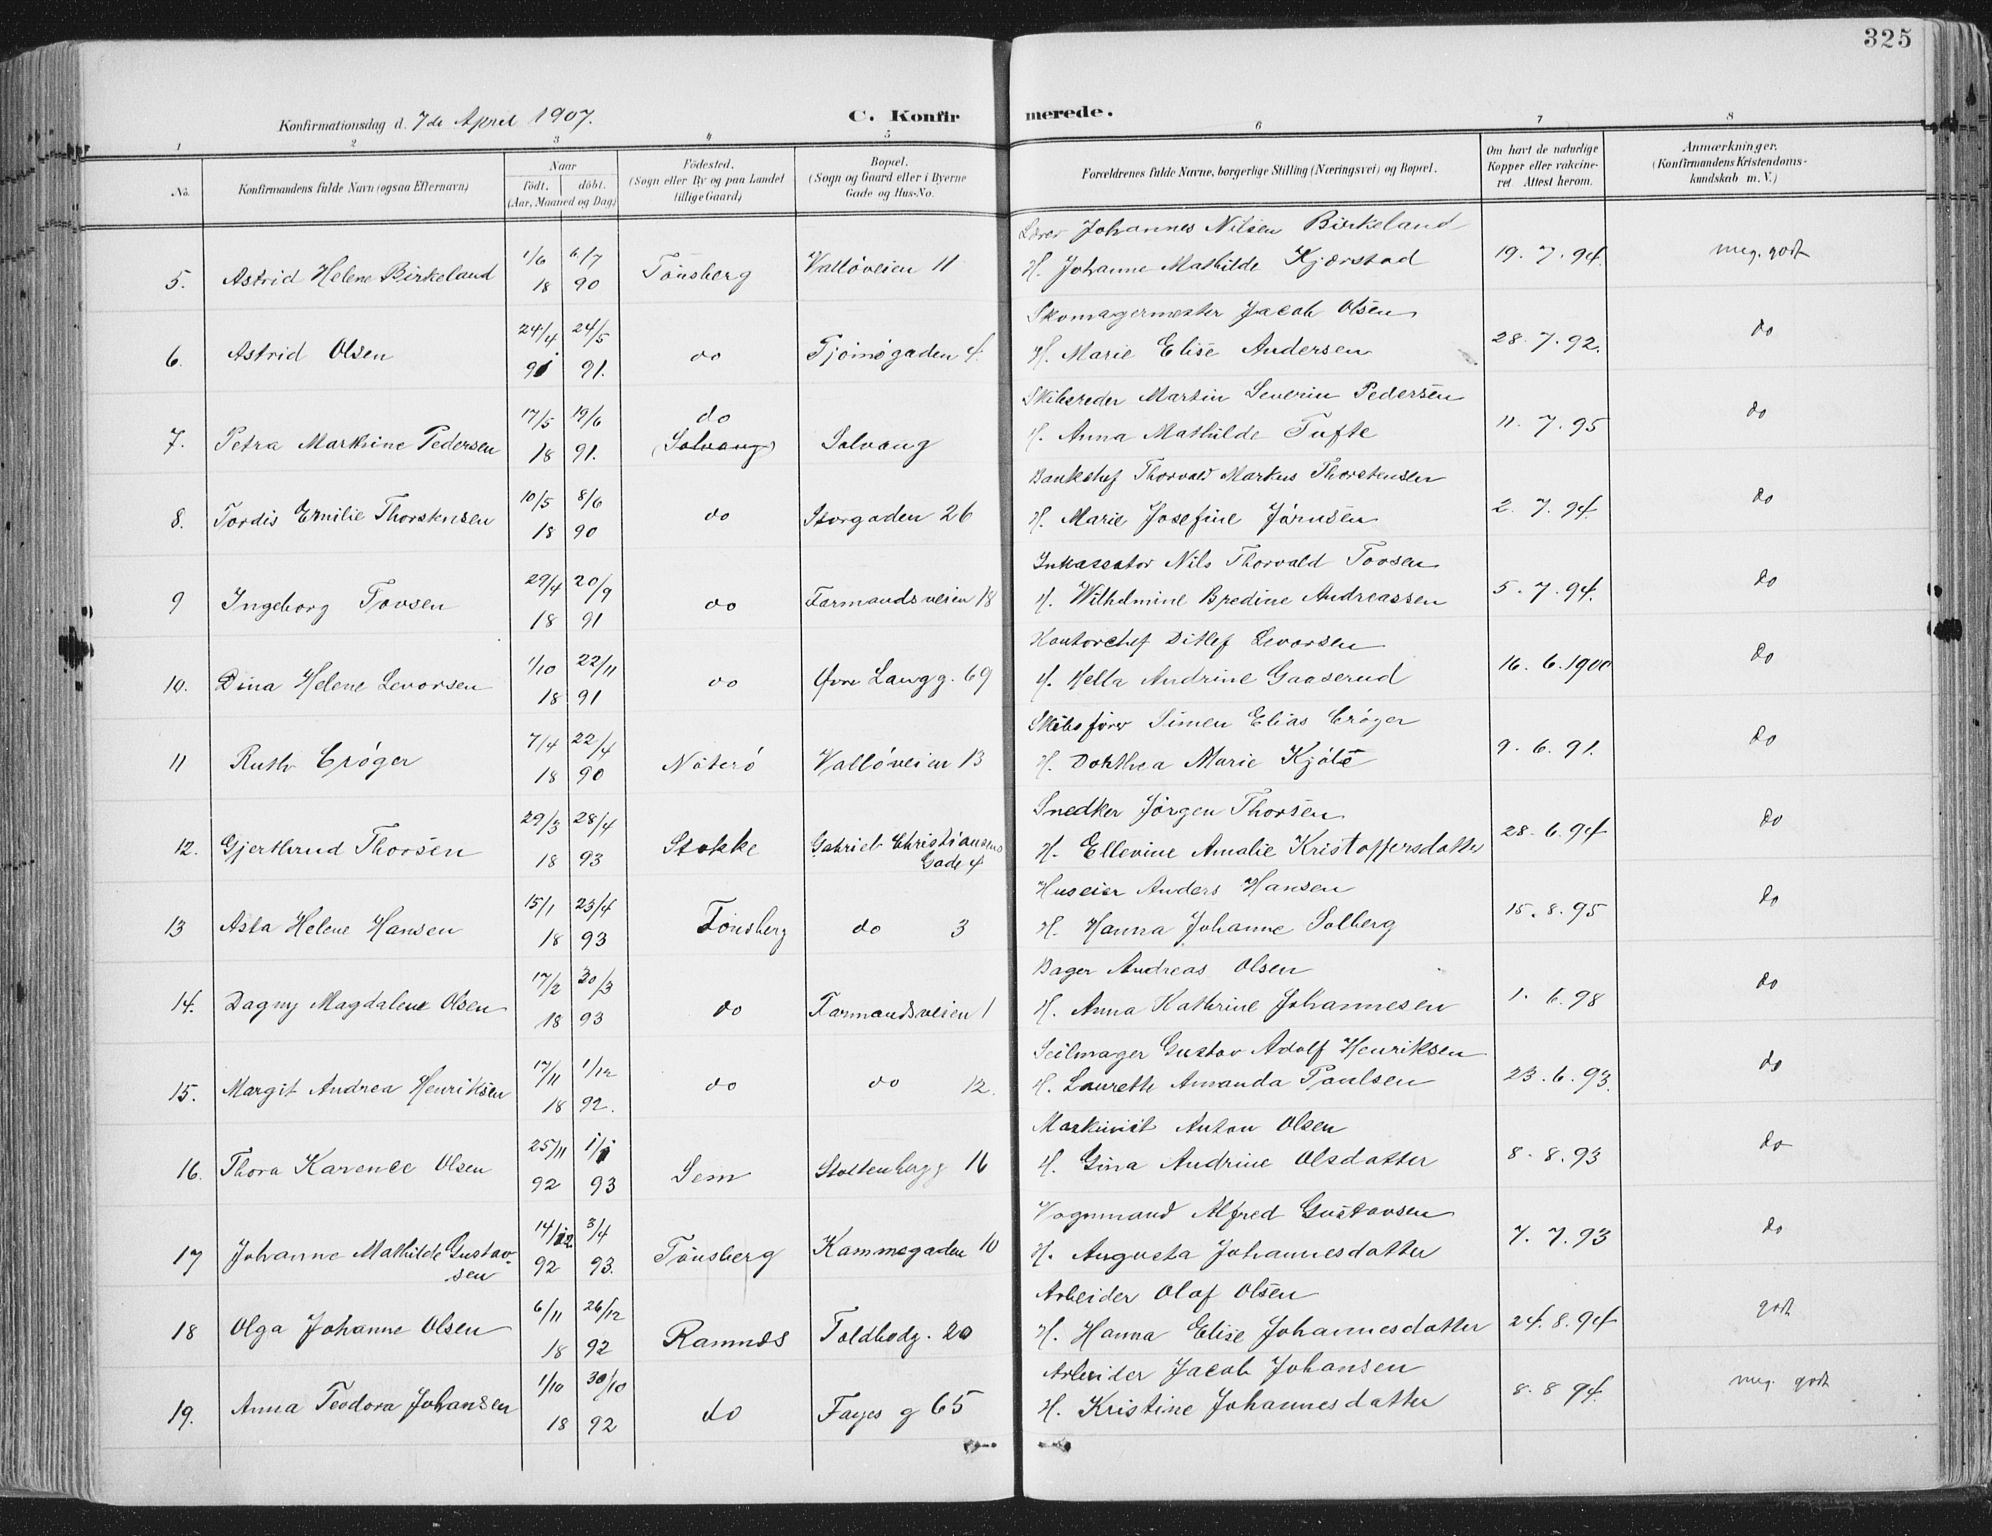 325
Konfirmationsdag d. 7de April 1907. C. Konfirmerede.
1 2 3 4 5 6 7 8
No. Konfirmandens fulde Navn (ogsaa Efternavn) Naar födt. döbt. (Aar, Maaned og Dag) Födested. (Sogn eller By og paa Landet tillige Gaard) Bopæl. (Sogn og Gaard eller i Byerne Gade og Hus-No. Forældrenes fulde Navne, borgerlige Stilling (Næringsvei) og Bopæl. Om havt de naturlige Kopper eller vakcineret. Attest herom. Anmærkninger. (Konfirmandens Kristendomskundskab m. V.)
Lærer Johannes Nilsen Birkeland
5. Astrid Helene Birkeland 1/6 18 6/7 90 Tönsberg Vallöveien 11 H. Johanne Mathilde Kjærstad 19.7.94. meg. godt
Skomagermester Jacob Olsen
6. Astrid Olsen 24/4 91 24/5 91. do Tjömögaden 4. H. Marie Elise Andersen 28.7.92. do
Skibsreder Martin Severin Pedersen
7. Petra Martine Pedersen 17/5 18 19/6 91. do (Solvang) Solvang H. Anna Mathilde Tufte 11.7.95 do
Bankchef Thorvald Markus Thorstensen
8. Tordis Emilie Thorstensen 10/5 18 8/6 90 do Storgaden 26 H. Marie Josefine Jörnsen 2.7.94. do
Inkassator Nils Thorvald Tovsen
9 Ingeborg Tovsen 29/4 18 20/9 91 do Farmandsveien 18 H. Wilhelmine Bredine Andreassen 5.7.94. do
Kontorchef Ditlef Levorsen
10. Dina Helene Levorsen 1/10 18 22/11 91 do Øvre Langg. 69 H. Hella Andrine Gaaserud 16.6.1900 do
Skibsförer Simen Elias Cröger
11 Ruth Cröger 7/4 18 22/4 90 Nöterö Vallöveien 13 H. Dorthea Marie Kjöle 9.6.91. do
Snedker Jörgen Thorsen
12. Gjerthrud Thorsen 29/3 18 28/4 93 Stokke Gabriel Christiansens Gade 4 H. Ellevine Amalie Kristoffersdatter 28.6.94 do
Huseier Anders Hansen
13 Asta Helene Hansen 15/1 18 23/4 93 Tönsberg do 3 H. Hanna Johanne Solberg 15.8.95 do
Bager Andreas Olsen
14. Dagny Magdalene Olsen 17/2 18 30/3 93 do Farmandsveien 1 H. Anna Kathrine Johannesen 1.6.98 do
Seilmager Gustav Adolf Henriksen
15. Margit Andrea Henriksen 17/11 18 1/12 92. do do 12. H. Laurette Amanda Paulsen 23.6.93. do
Maskinist Anton Olsen
16. Thora Karence Olsen 25/11 92 1/1 93 Sem Stoltenbergg 16 H. Gina Andrine Olsdatter 8.8.93 do
Vognmand Alfred Gustavsen
17 Johanne Mathilde Gustavsen 14/12 92 3/4 93. Tönsberg Kammegaden 10 H. Augusta Johannesdatter 7.7.93 do
Arbeider Olaf Olsen
18 Olga Johanne Olsen 6/11 18 26/12 92 Ramnes Toldbodg. 20 H. Hanna Elise Johannesdatter 24.8.94 godt
Arbeider Jacob Johansen
19. Anna Teodora Johansen 1/10 18 30/10 92 do Fayes g 65 H. Kristine Johannesdatter 8.8 94. meg. godt